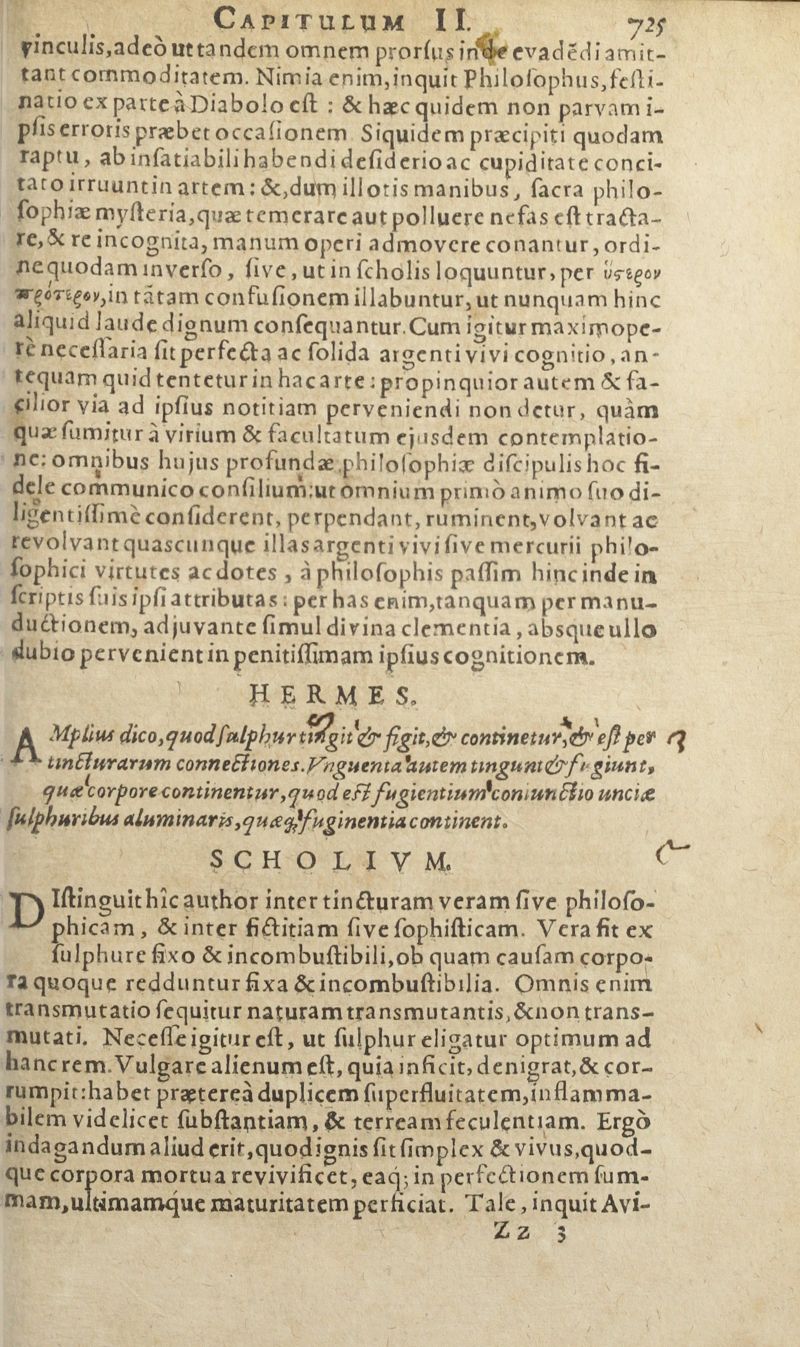 CAPITULUM II. 725
vinculis,adeò ut tandem omnem prorſus inde evadēdi amit-
tant commoditatem. Nimia enim,inquit Philoſophus,feſti-
natio ex parte à Diabolo eſt : & hæc quidem non parvam i-
pſis erroris præbet occaſionem Siquidem præcipiti quodam
raptu, ab inſatiabili habendi deſiderio ac cupiditate conci-
tato irruunt in artem: &,dum illotis manibus, ſacra philo-
ſophiæ myſteria,quæ temerare aut polluere nefas eſt tracta-
re,& re incognita, manum operi admovere conantur, ordi-
ne quodam inverſo, ſive, ut in ſcholis loquuntur, per ὕστερον
πρότερον,in tātam confuſionem illabuntur, ut nunquam hinc
aliquid laude dignum conſequantur. Cum igitur maximope-
rè neceſſaria ſit perfecta ac ſolida argenti vivi cognitio, an-
tequam quid tentetur in hac arte : propinquior autem & fa-
cilior via ad ipſius notitiam perveniendi non detur, quàm
quæ ſumitur à virium & facultatum ejusdem contemplatio-
ne: omnibus hujus profundæ philoſophiæ diſcipulis hoc fi-
dele communico conſilium:ut omnium primò animo ſuo di-
ligentiſſimè conſiderent, perpendant, ruminent,volvant ac
revolvant quascunque illas argenti vivi ſive mercurii philo-
ſophici virtutes ac dotes , à philoſophis paſſim hinc inde in
ſcriptis ſuis ipſi attributas : per has enim,tanquam per manu-
ductionem, adjuvante ſimul divina clementia , absque ullo
dubio pervenient in penitiſſimam ipſius cognitionem.
HERMES.
AMplius dico,quod ſulphur tingit & figit,& continetur,& eſt per
tincturarum connectiones. Vnguenta autem tingunt & fugiunt,
quæ corpore continentur,quod eſt fugientium coniunctio unciæ
ſulphuribus aluminaris,quæq; fuginentia continent.
SCHOLIVM.
DIſtinguit hîc author inter tincturam veram ſive philoſo-
phicam , & inter fictitiam ſive ſophiſticam. Vera fit ex
ſulphure fixo & incombuſtibili,ob quam cauſam corpo-
ra quoque redduntur fixa & incombuſtibilia. Omnis enim
transmutatio ſequitur naturam transmutantis,& non trans-
mutati. Neceſſe igitur eſt, ut ſulphur eligatur optimum ad
hanc rem. Vulgare alienum eſt, quia inficit, denigrat,& cor-
rumpit:habet præterea duplicem ſuperfluitatem,inflamma-
bilem videlicet ſubſtantiam, & terream feculentiam. Ergò
indagandum aliud erit,quod ignis ſit ſimplex & vivus,quod-
que corpora mortua revivificet, eaq; in perfectionem ſum-
mam,ultimamque maturitatem perficiat. Tale, inquit Avi-
Zz 3